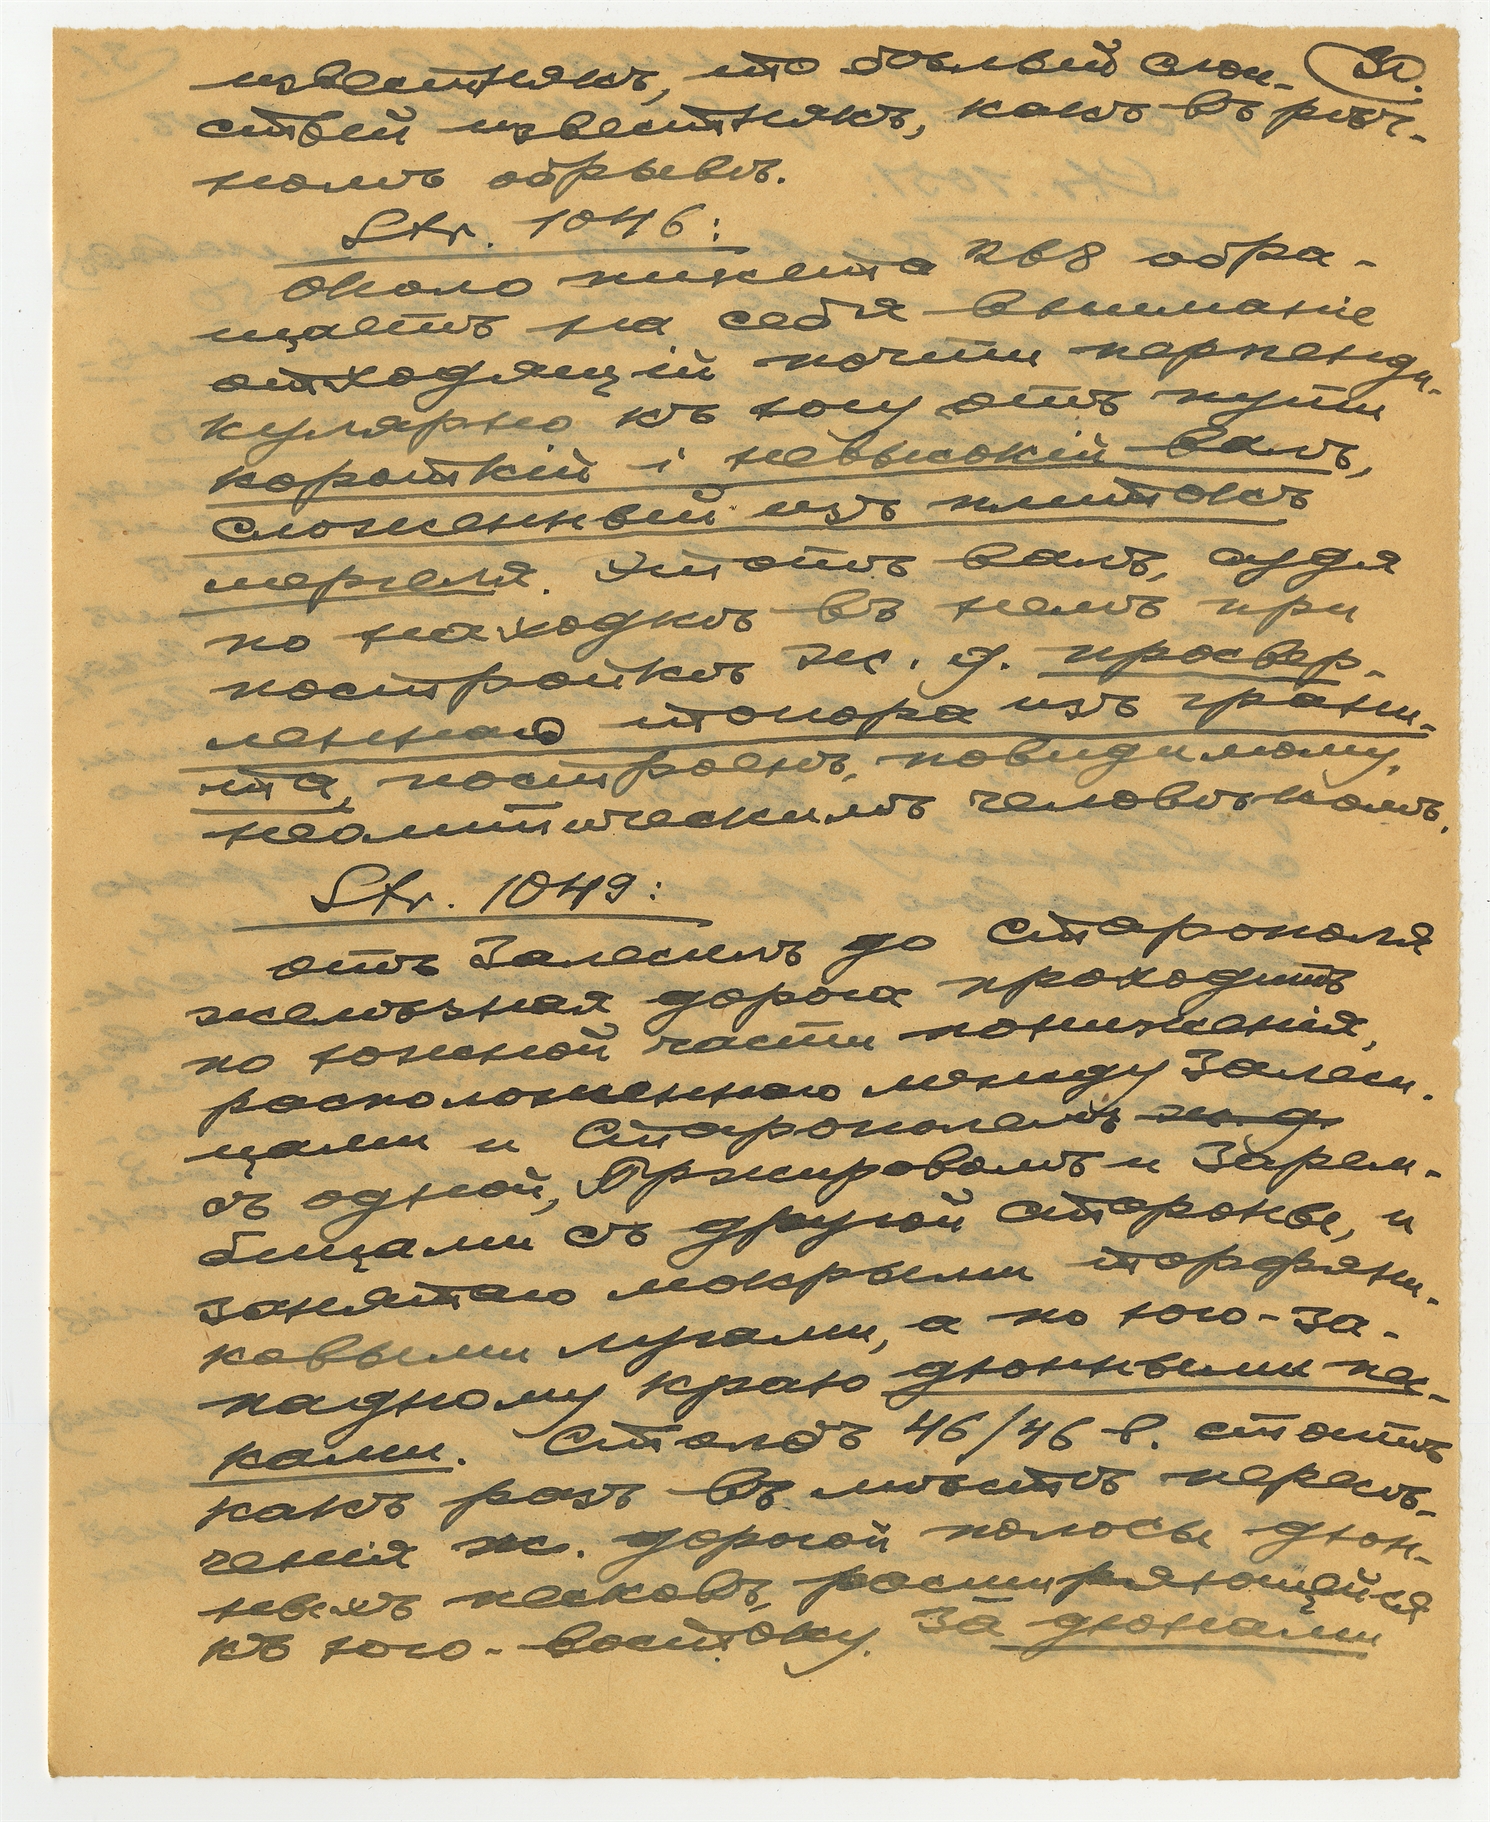 30.
известнякъ, то бѣлый слои-
стый известнякъ, какъ въ рѣч-
номъ обрывѣ.
Str. 1046:
около пикета 268 обра-
щаетъ на себя вниманіе
отходящій почти перпенди-
кулярно къ югу отъ пути
короткій i невысокій валъ,
сложенный изъ плитокъ
мергеля. Этотъ валъ, судя
по находкѣ въ немъ при
постройкѣ ж. д. просвер-
леннаго топора изъ грани-
та, построенъ, повидимому,
неолитическимъ человѣкомъ.
Str. 1049:
отъ Залесицъ до Старополя
желѣзная дорога проходитъ
по южной части пониженія,
расположеннаго между Залеси-
цами и Старополемъ ж. д.
съ одной, Пржировомъ и Зарем-
бицами съ другой стороны, и
занятаго мокрыми торфяни-
ковыми лугами, а по юго-за-
падному краю дюнными пес-
ками. Столбъ 46/46 в. стоитъ
какъ разъ въ мѣстѣ пересѣ-
ченія ж. дорогой полосы дюн-
ныхъ песковъ, расширяющейся
къ юго-востоку. За дюнами